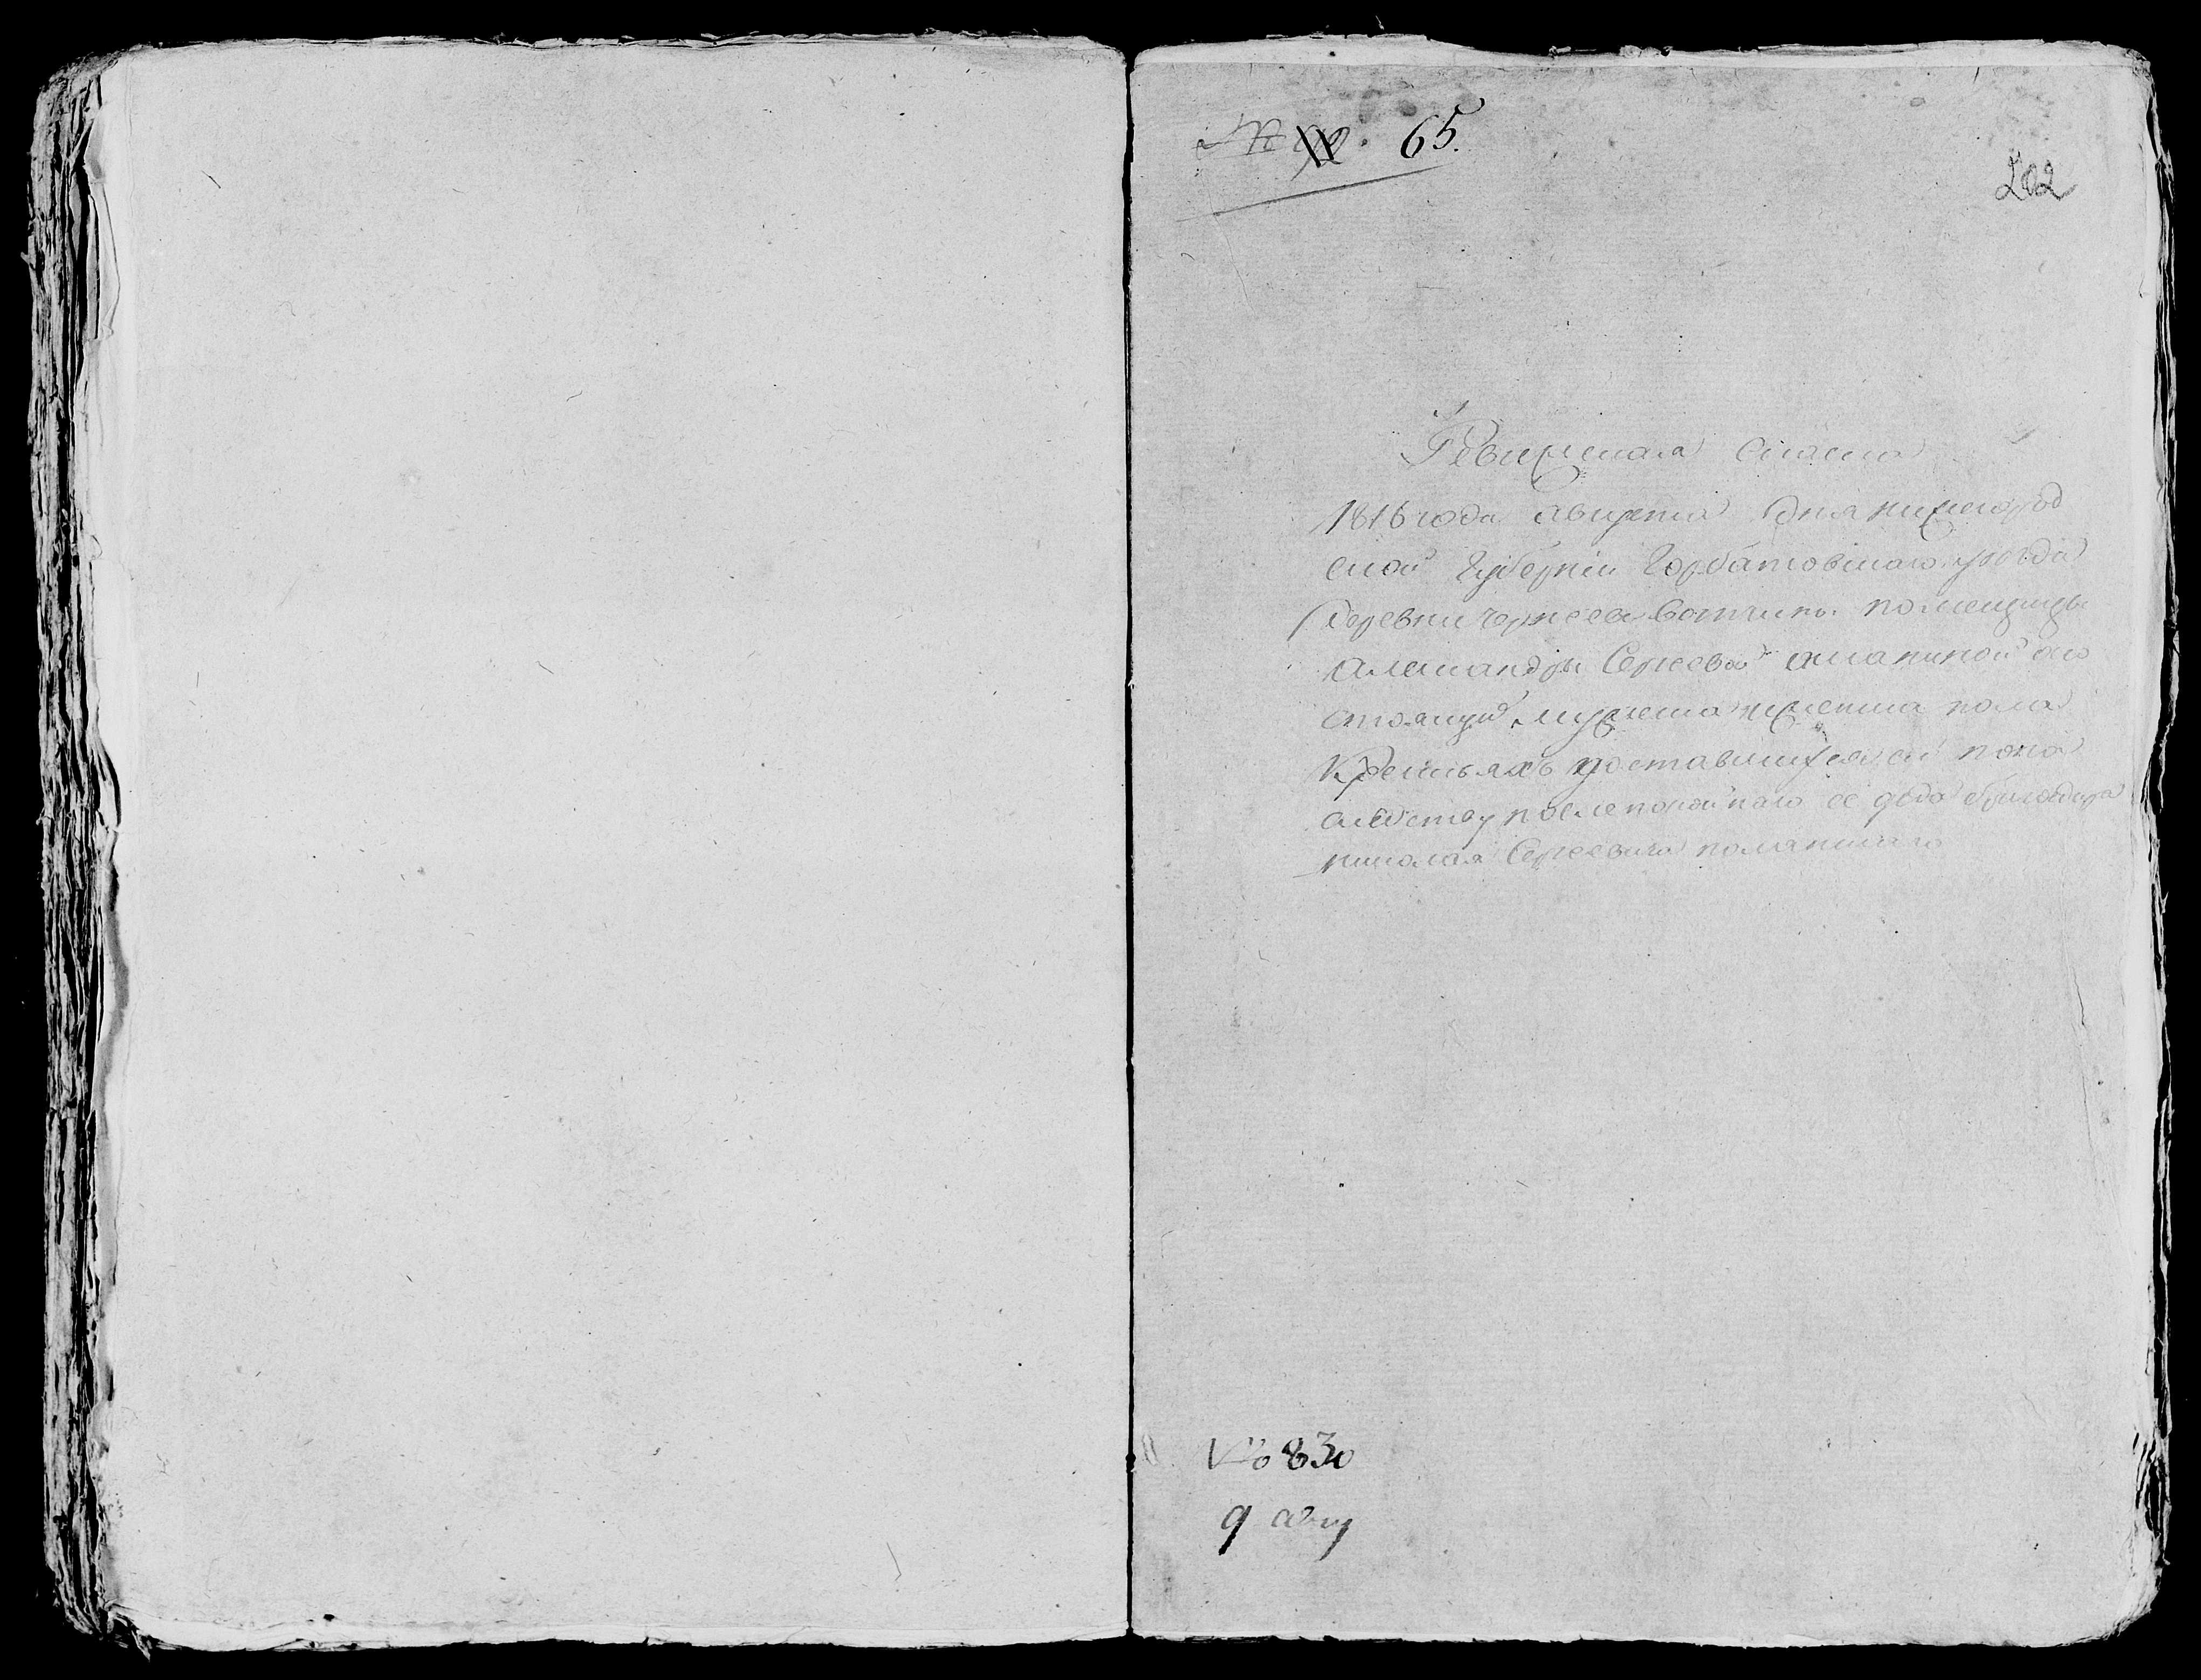 № 65.
202
Ревижская скаска
1816 года августа дня нижегород
ской губернии Горбатовскаго уезда
деревни вотчины помещицы
александры Сергеевой о со
стоящих мужеска и женска пола
крестьянъ доставшихся ей по на
следству после покойнаго ее деда бригадира
николая Сергеевича
№ 830
9 авгу